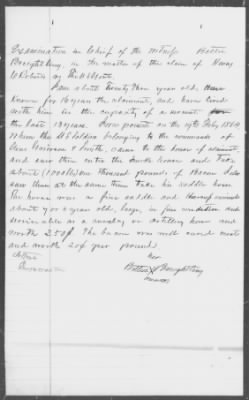 Examination in Chief of the witness Bettie
Brightling, in the matter of the claim of Henry
C Roberts by
I am about Twenty three year old, have
Known for 13 years the claimant, and have lived
with him in the capacity of a servant for
the last 13 years. I was present on the 19th Feby 1864
When the U S Soldiers belonging to the commands of
Genl Grierson & Smyth, came to the house of claimant
and saw them enter the smoke house and take
about (1000 lbs) one thousand pounds of Bacon I also
saw them at the same time take his saddle horse
The horse was a fine saddle and animal
about 7 or 8 year old, large, in fine condition and
serviceable as a cavalry or artillery horse and
worth 250$. The bacon was well cured meat
and worth 20¢ per pound.
Attest
her
Bettie X Brightling
mark